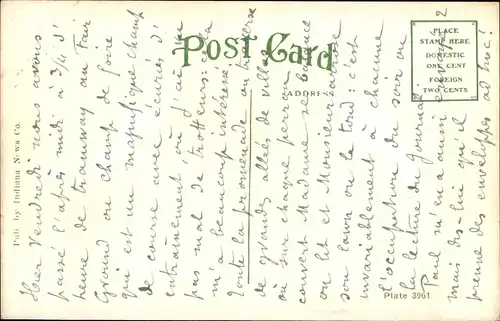 Post Card
ADDRESS
PLACE
STAMP HERE
DOMESTIC
ONE CENT
FOREIGN
TWO CENTS
Pub by Indiana News Co.
Plate 3961
2
Hier Vendredi nous avons
passé l'après midi à 3/4 d'
heure de tramway au Fair
Ground ou champ de foire
qui est un magnifique champ
de course avec écuries d'
entraînement où j'ai vu
pas mal de trotteurs: cela
m'a beaucoup intéressé
Toute la promenade on traverse
de grandes allées de villas
où sur chaque perron
couvert Madame se balance
ou lit et Monsieur arrose
son lawn ou le tond: c'est
invariablement à chacune
l'occupation du soir ou
la lecture du journal
Paul m'en a aussi envoyé
mais dis-lui qu'il
prenne des enveloppes ad hoc!